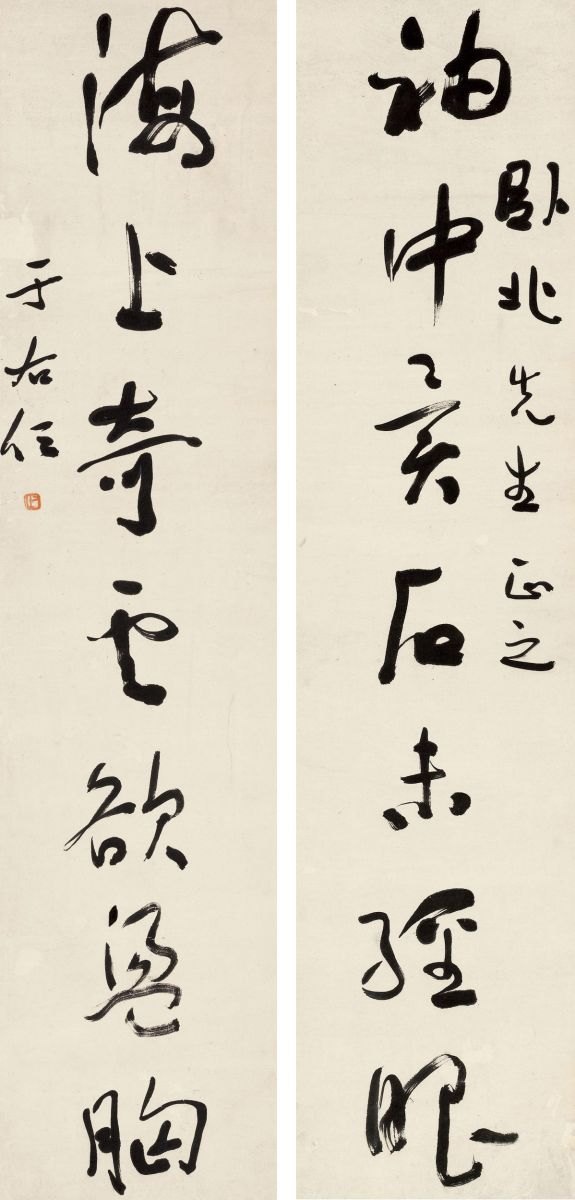 卧北先生正之
袖中異石未經眼
海上奇雲欲盪胸
于右任